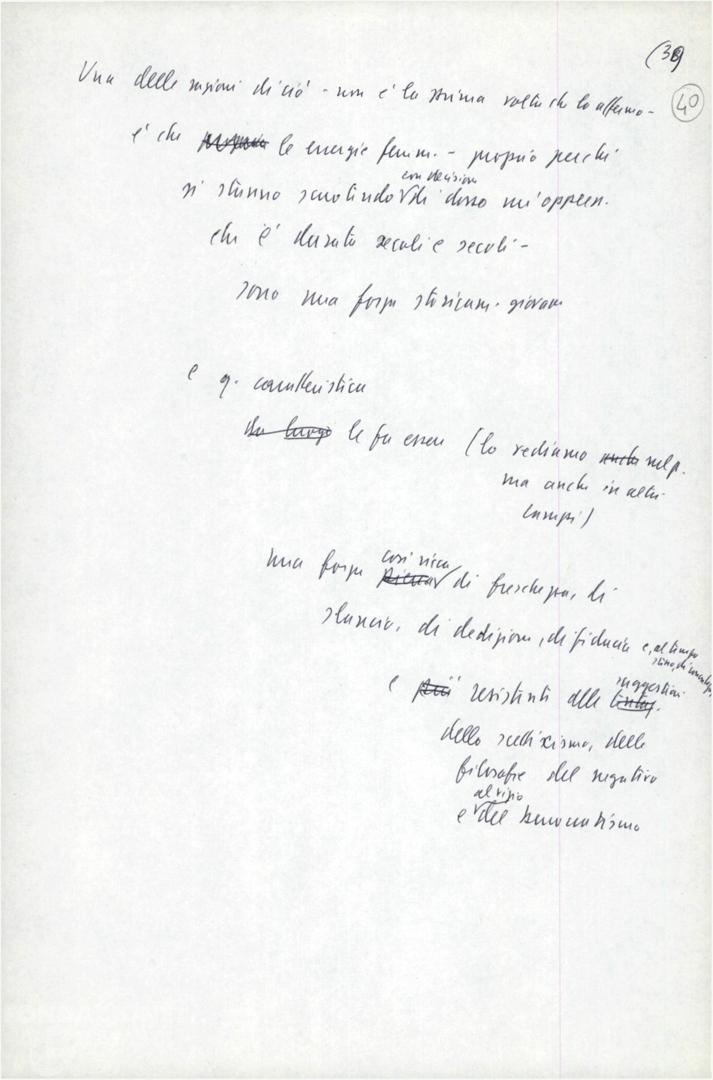 (39)
40
Una delle ragioni di ciò - non è la prima volta che lo affermo -
è che le energie femm. - proprio perché
con decisione
si stanno scuotendo di dosso un'oppress.
che è durata secoli e secoli -
sono una forza storicam. giovane
e q. caratteristica
da luogo le fa essere (lo vediamo anche nel p.
ma anche in altri
campi)
così ricca
una forza piena di freschezza, di
slancio, di dedizione, di fiducia e, al tempo
stesso, di
suggestioni
e più resistenti alle tentaz.
dello scetticismo, delle
filosofie del negativo
al vizio
e del burocratismo